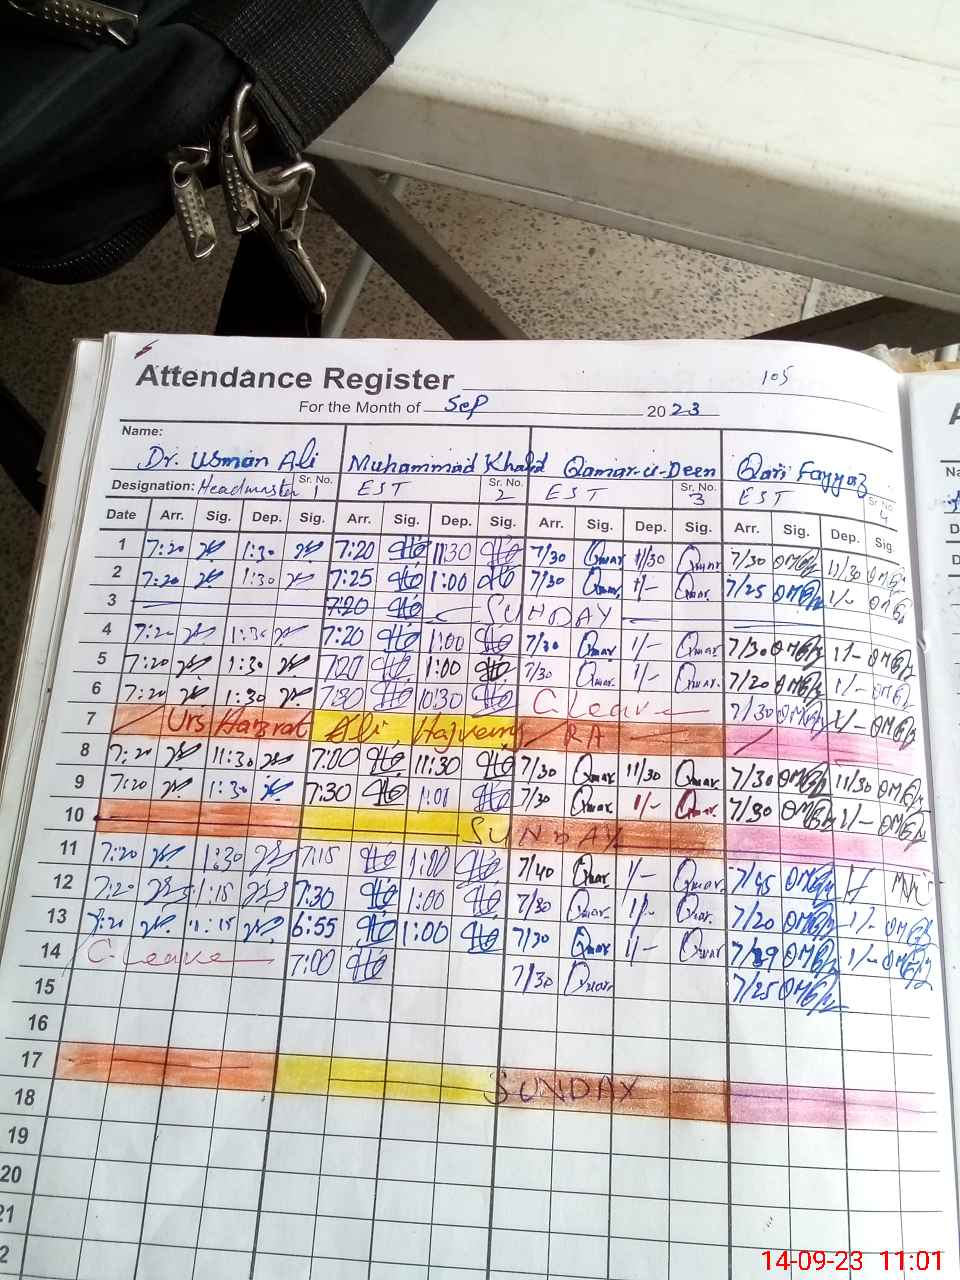 105
Attendance Register
For the Month of Sep 2023
Name: Dr. Usman Ali Muhammad Khalid Qamar-u-Deen Qari Fayyaz
Designation: Headmaster Sr. No. 1 EST Sr. No. 2 EST Sr. No. 3 EST Sr. No. 4
Date Arr. Sig. Dep. Sig. Arr. Sig. Dep. Sig. Arr. Sig. Dep. Sig. Arr. Sig. Dep. Sig.
1 7:20 1:30 7:20 11:30 7/30 Qmar 11/30 Qmar 7/30 11/30
2 7:20 1:30 7:25 1:00 7/30 Qmar 1/- Qmar 7/25 1/-
3 7:20 SUNDAY
4 7:20 1:30 7:20 1:00 7/30 Qmar 1/- Qmar 7/30 1/-
5 7:20 1:30 7:20 1:00 7/30 Qmar 1/- Qmar 7/20 1/-
6 7:20 1:30 7:30 10:30 C. Leave 7/30 1/-
7 Urs Hazrat Ali Hajveri RA
8 7:20 11:30 7:00 11:30 7/30 Qmar 11/30 Qmar 7/30 11/30
9 7:20 1:30 7:30 1:01 7/30 Qmar 1/- Qmar 7/30 1/-
10 SUNDAY
11 7:20 1:30 7:15 1:00 7/40 Qmar 1/- Qmar 7/45
12 7:20 1:15 7:30 1:00 7/30 Qmar 1/- Qmar 7/20 1/-
13 7:20 1:15 6:55 1:00 7/30 Qmar 1/- Qmar 7/29 1/-
14 C. Leave 7:00 7/30 Qmar 7/25
15
16
17 SUNDAY
18
19
20
21
14-09-23 11:01